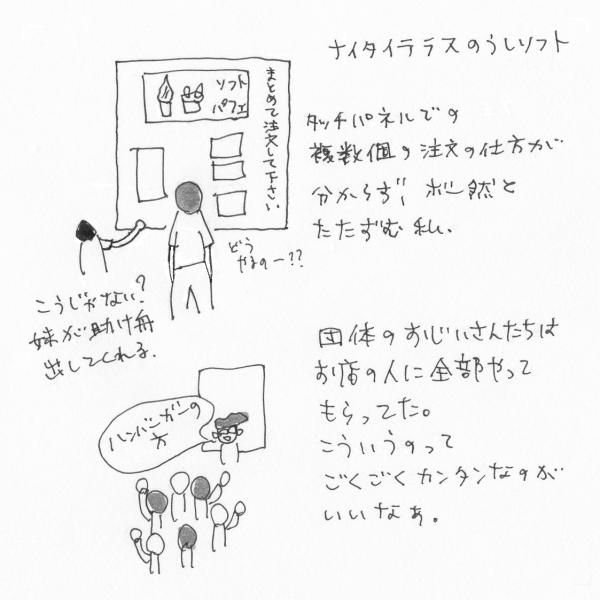 ナイタイテラスのうしソフト
ソフト
パフェ
まとめて注文して下さい
タッチパネルでの
複数個の注文の仕方が
分からず、ボー然と
たたずむ私、
どう
やるのー??
こうじゃない?
妹が助け舟
出してくれる。
団体のおじいさんたちは
お店の人に全部やって
もらってた。
こういうのって
ごくごくカンタンなのが
いいなぁ。
ハンバーガーの
方